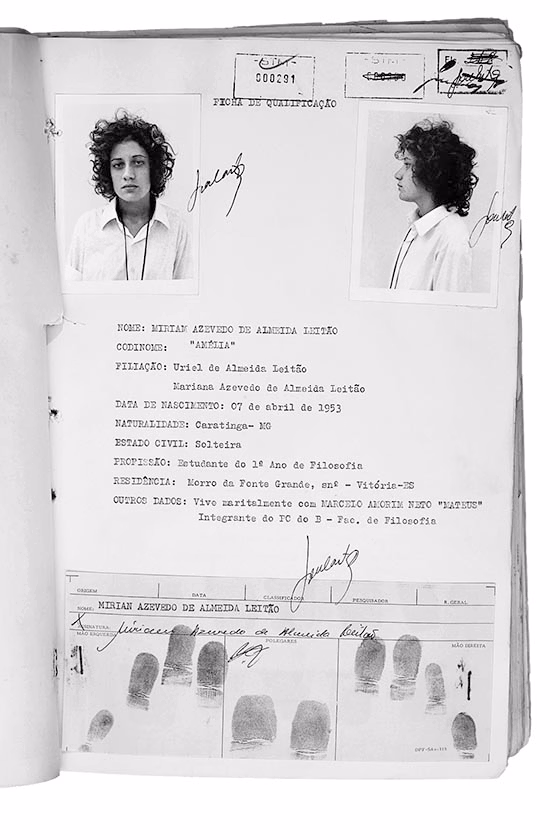 STM
000291
STM
FICHA DE QUALIFICAÇÃO
NOME: MIRIAM AZEVEDO DE ALMEIDA LEITÃO
CODINOME: "AMÉLIA"
FILIAÇÃO: Uriel de Almeida Leitão
Mariana Azevedo de Almeida Leitão
DATA DE NASCIMENTO: 07 de abril de 1953
NATURALIDADE: Caratinga- MG
ESTADO CIVIL: Solteira
PROFISSÃO: Estudante do 1º Ano de Filosofia
RESIDÊNCIA: Morro da Fonte Grande, snº - Vitória-ES
OUTROS DADOS: Vive maritalmente com MARCELO AMORIM NETO "MATEUS"
Integrante do PC do B - Fac. de Filosofia
ORIGEM DATA CLASSIFICADOR PESQUISADOR R. GERAL
NOME: MIRIAN AZEVEDO DE ALMEIDA LEITÃO
ASSINATURA: Miriam Azevedo de Almeida Leitão
MÃO ESQUERDA POLEGARES MÃO DIREITA